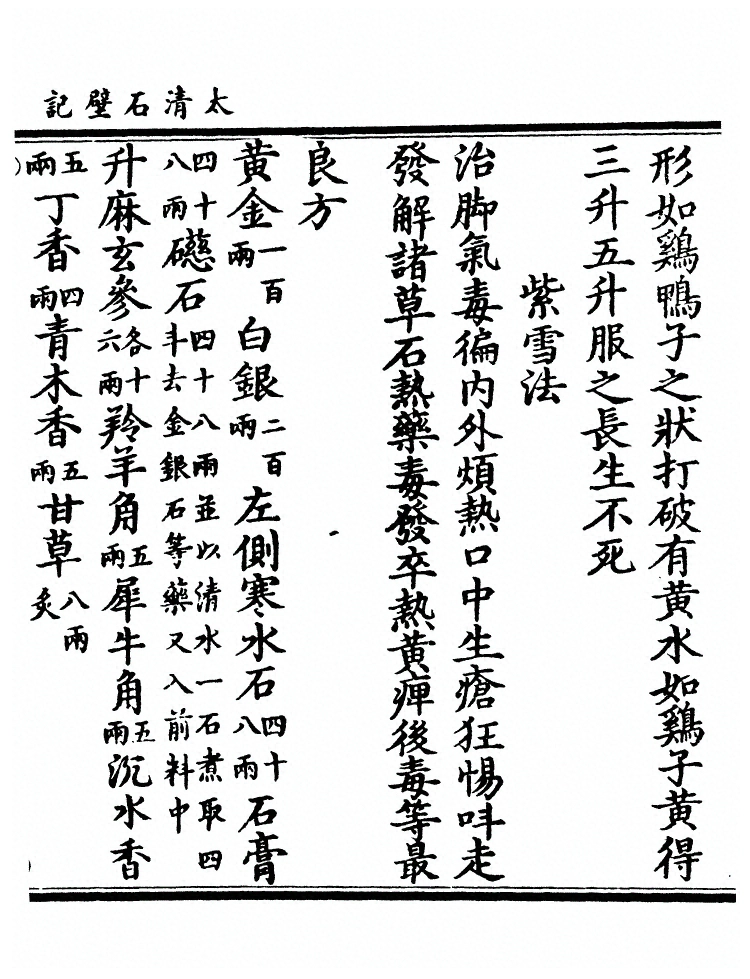 太清石壁記
形如鷄鴨子之狀打破有黃水如鷄子黃得
三升五升服之長生不死
紫雪法
治脚氣毒徧內外煩熱口中生瘡狂惕呌走
發解諸草石熱藥毒發卒熱黃痺後毒等最
良方
黃金一百兩白銀二百兩左側寒水石四十八兩石膏
四十八兩礠石四十八兩並以清水一石煮取四斗去金銀石等藥又入前料中
升麻玄參各十六兩羚羊角五兩犀牛角五兩沉水香
五兩丁香四兩青木香五兩甘草八兩炙